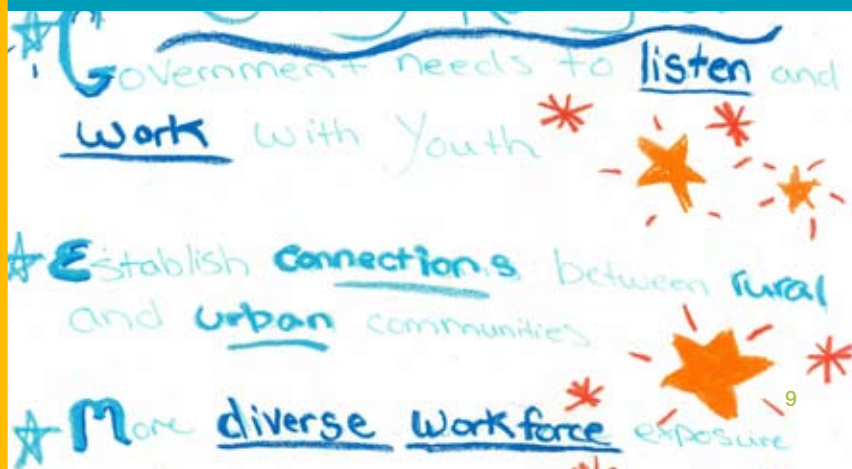 Government needs to listen and
work with Youth
Establish connections between rural
and urban communities
9
More diverse workforce exposure